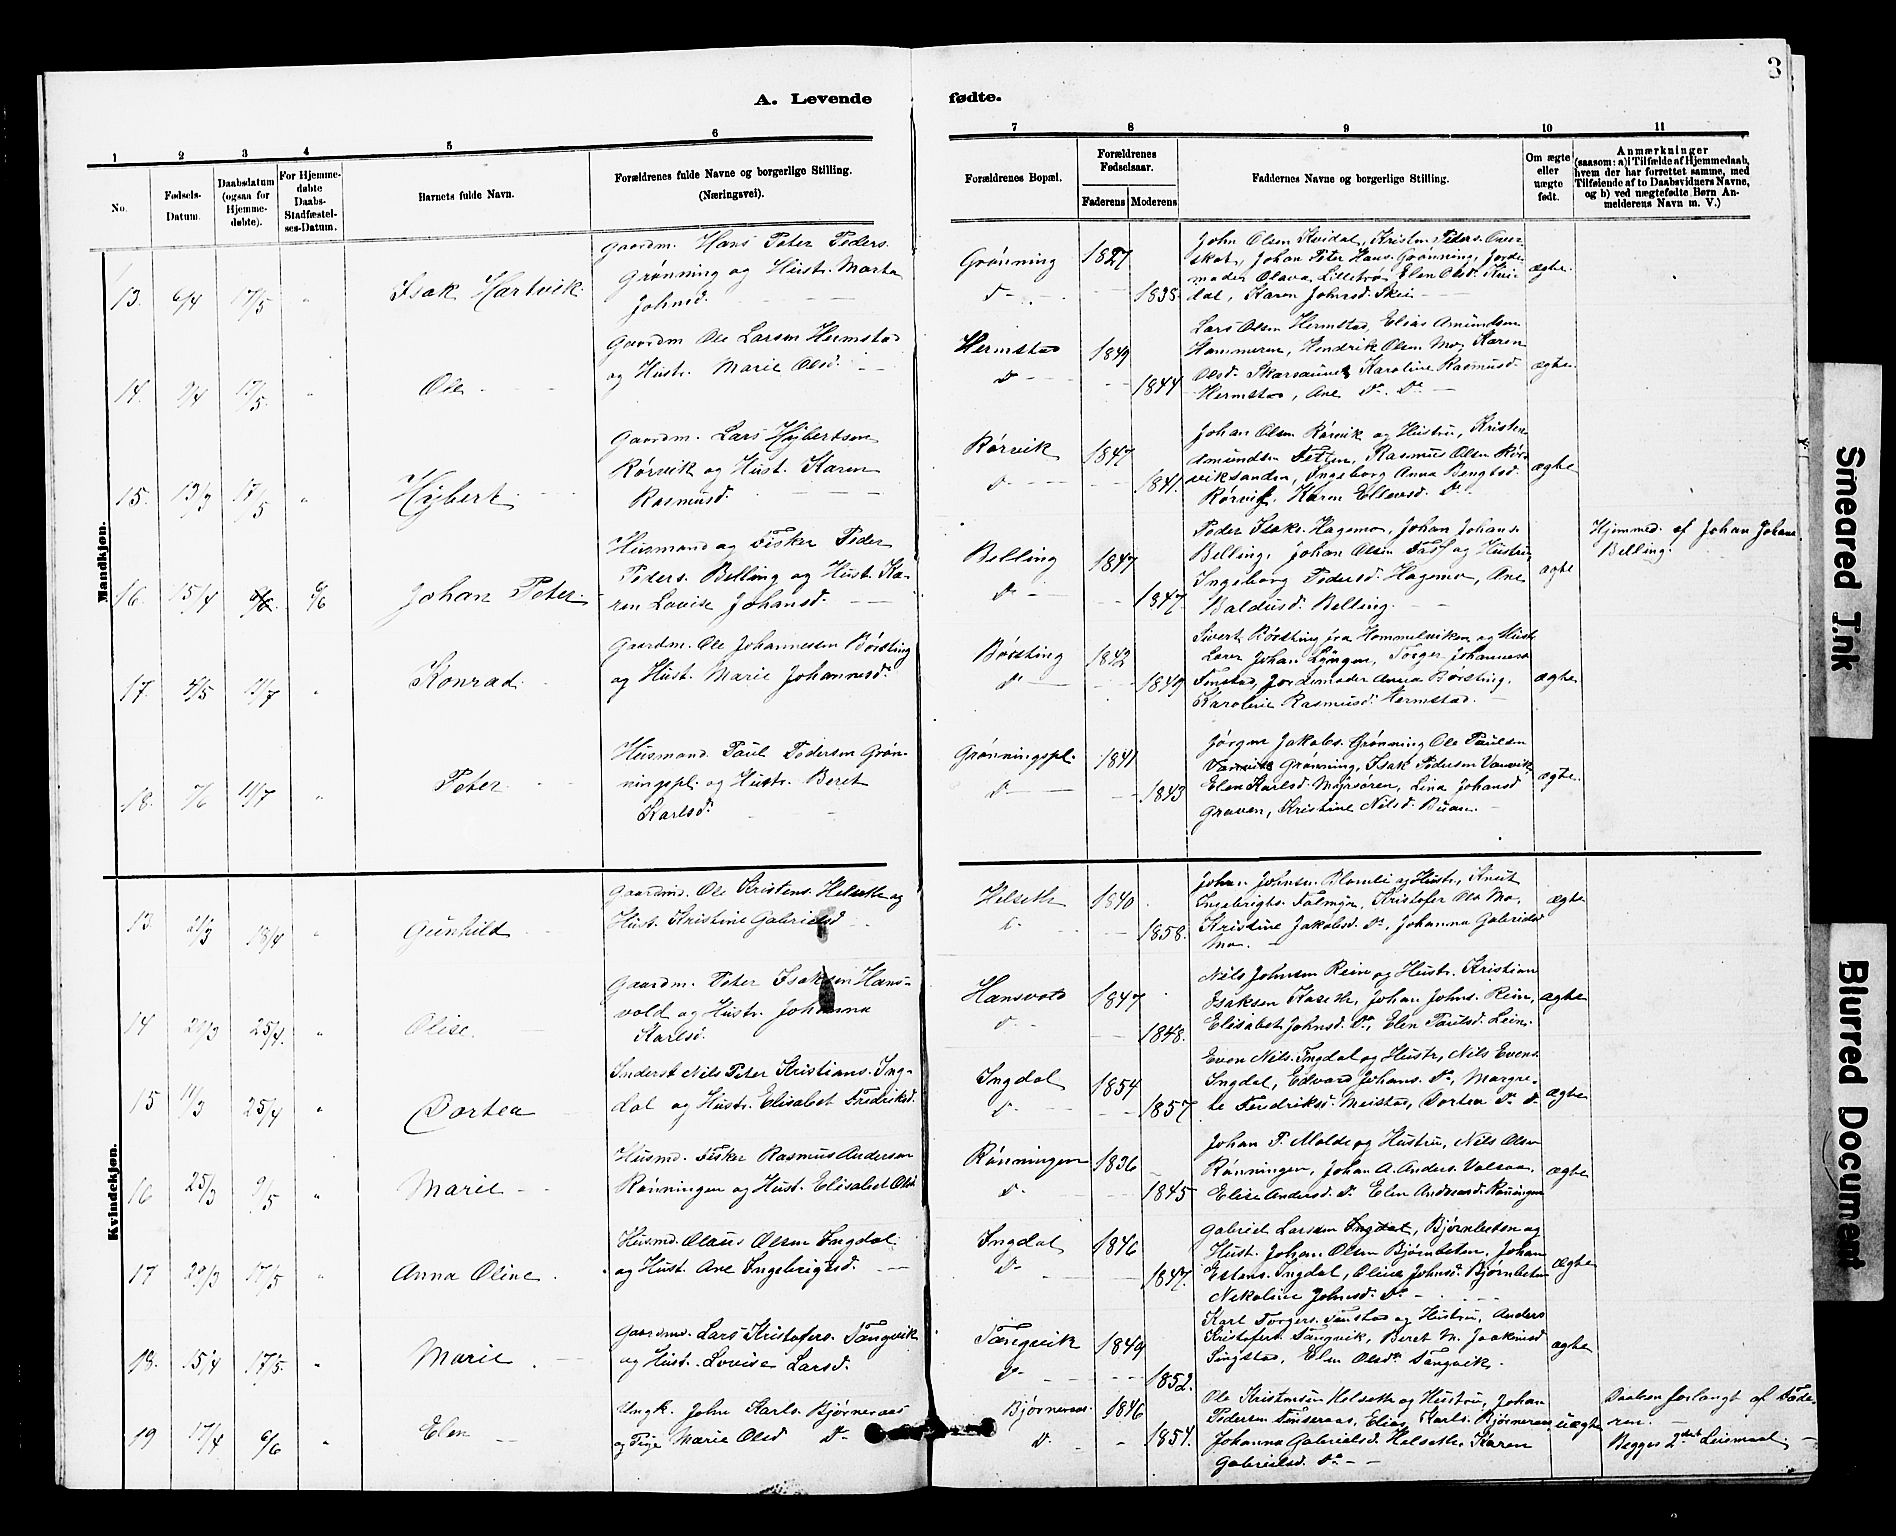 3
A. Levende fødte.
1 2 3 4 5 6 7 8 9 10 11
No.
Fødsels-
Datum.
Daabsdatum
(ogsaa for
Hjemme-
døbte).
For Hjemme-
døbte
Daabs-
Stadfæstel-
ses-Datum.
Barnets fulde Navn.
Forældrenes fulde Navne og borgerlige Stilling.
(Næringsvei).
Forældrenes Bopæl.
Forældrenes
Fødselsaar.
Faderens Moderens
Faddernes Navne og borgerlige Stilling.
Om ægte
eller
uægte
født.
Anmærkninger
(saasom: a) i Tilfælde af Hjemmedaab,
hvem der har forrettet samme, med
Tilføiende af to Daabsvidners Navne,
og b) ved uægtefødte Børn An-
melderens Navn m. V.)
Mandkjøn.
13. 6/4 17/5 " Isak Hartvik
Gaardm. Hans Peter Peders.
Grønning og Hustr. Marta
Johnsd.
Grønning 1827
Do 1838
John Olsen Kvidal, Kristen Peders. Over-
skot, Johan Peter Hans. Grønning, Jorde-
moder Olava Lilletrø, Elen Olsd. Kvi-
dal, Karen Johnsd. Skei
ægte.
14. 2/4 17/5 " Ole
Gaardm Ole Larsen Hermstad
og Hustr. Marie Olsd.
Hermstad 1849
Do 1844
Lars Olsen Hermstad, Elias Amundsen
Hammeren, Hendrik Olsen Mo, Karen
Olsd. Skarsaune, Karoline Rasmusd.
Hermstad, Ane Do. Do
ægte.
15. 13/3 17/5 " Hybert
Gaardm. Lars Hybertsen
Rørvik og Hust. Karen
Rasmusd.
Rørvik 1847
Do 1841.
Johan Olsen Rørvik og Hustru, Kristen
Amundsen Fetten, Rasmus Olsen Rør-
viksanden, Ingeborg Anna Bengtsd.
Rørvik, Karen Do.
ægte
16. 15/4 6/6 Johan Peter
Husmand og Fisker Peder
Peders. Belling og Hust. Ka-
ren Lovise Johansd.
Belling 1847
Do 1847
Peder Isaks. Hagemo, Johan Johans.
Belling, Johan Olsen og Hustru,
Ingeborg Pedersd. Hagemo, Ane
Baldusd. Belling.
ægte
Hjemmed. af Johan Johans.
Belling.
17. 4/5 11/7 " Konrad
Gaardm. Ole Johannesen Børsting
og Hust. Marie Johannesd.
Børsting 1842
Do 1849
Sivert Børsting fra Hommelviken og Hust.
Lærer Johan Lyngen, Torger Johannes.
Finstad, Jordemoder Anna Børsting.
Karoline Rasmusd. Hermstad.
ægte
18. 7/6 11/7 " Peter
Husmand Paul Pedersen Grøn-
ningspl. og Hustr. Beret
Karlsd.
Grønningspl. 1841
Do 1843
Jørgen Jakobs. Grønning Ole Paulsen
Grønning, Isak Pedersen Vanvik
Elen Karlsd. Myrsøren, Lina Johansd
Graven, Kristine Nilsd. Buan.
ægte.
Kvindekjøn.
13. 21/3 18/4 " Gunhild
Gaardmd. Ole Kristens. Helseth og
Hust. Kristine Gabrielsd
Helseth 1840
Do 1858.
Johan Johnsen Blomli og Hustr., Knut
Ingebrigts. Kristofer Ols Mo,
Kristine Jakobsd. Do, Johanna Gabrielsd
Mo.
ægte
14 20/3 25/4. " Olise
Gaardm. Peter Isaksen Hans-
vold og Hustr. Johanna
Karlsd.
Hansvold 1847
Do 1848.
Nils Johnsen Rein og Hustr. Kristian
Isaksen Johan Johns. Rein,
Elisabet Johnsd. Do, Elen Paulsd. Lein.
ægte
15 11/3 25/4 " Dortea
Inderst Nils Peter Kristians. Ing-
dal og Hustr. Elisabet Fredriksd.
Ingdal 1854
Do 1857
Even Nils. Ingdal og Hustr, Nils Evens.
Ingdal, Edvard Johans. Do, Margre-
te Fredriksd. Meistad, Dortea Do. Do
ægte
16 25/3 9/5 " Marie
Husmd. Fisker Rasmus Andersen
Rønningen og Hust. Elisabet Olsd
Rønningen 1836
Do 1845
Johan P. Molde og Hustru, Nils Olsen
Rønningen, Johan A. Anders. Valsaa,
Elise Andersd. Do Elen Andreasd. Rønningen
ægte
17 20/3 17/5 " Anna Oline
Husmd. Olaus Olsen Ingdal
og Hust. Ane Ingebrigtsd.
Ingdal 1846
Do 1847.
Gabriel Larsen Ingdal, Bjørnbeten og
Hust. Johan Olsen Bjørnbeten, Johan
Estens. Ingdal, Olina Johnsd. Bjørnbeten
Nekoline Johnsd. Do
ægte
18. 15/4 17/5. " Marie
Gaardmd. Lars Kristofers. Tangvik
og Hust. Lovise Larsd.
Tangvik 1849
Do 1852.
Karl Torgers. Finstad og Hustru, Anders
Kristofers. Tangvik, Beret M. Joakimsd
Singstad, Elen Olsd. Tangvik.
ægte
19 17/4 6/6 " Elen
Ungk. John Karls. Bjørneraas
og Pige Marie Olsd Do
Bjørneraas. 1846
Do 1854.
Ole Kristensen Helseth og Hustru, Johan
Pedersen Elias Karls. Bjørneraas,
Johanna Gabrielsd. Helseth, Karen
Gabrielsd. Do
uægte
Daaben forlangt af Fade-
ren.
Begges 2det Leiermaal.
Smeared Ink
Blurred Document